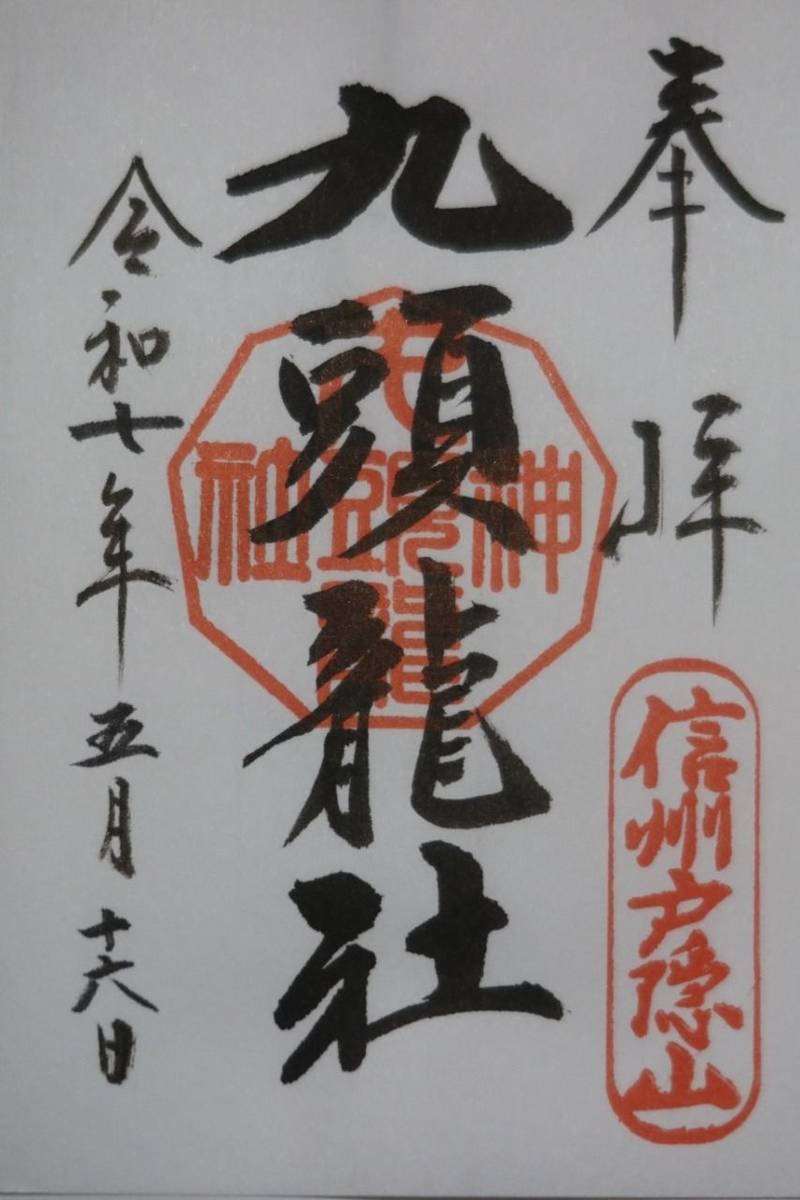 奉拝
信州戸隠山
九頭龍社
神 九頭龍 社
令和七年五月十六日